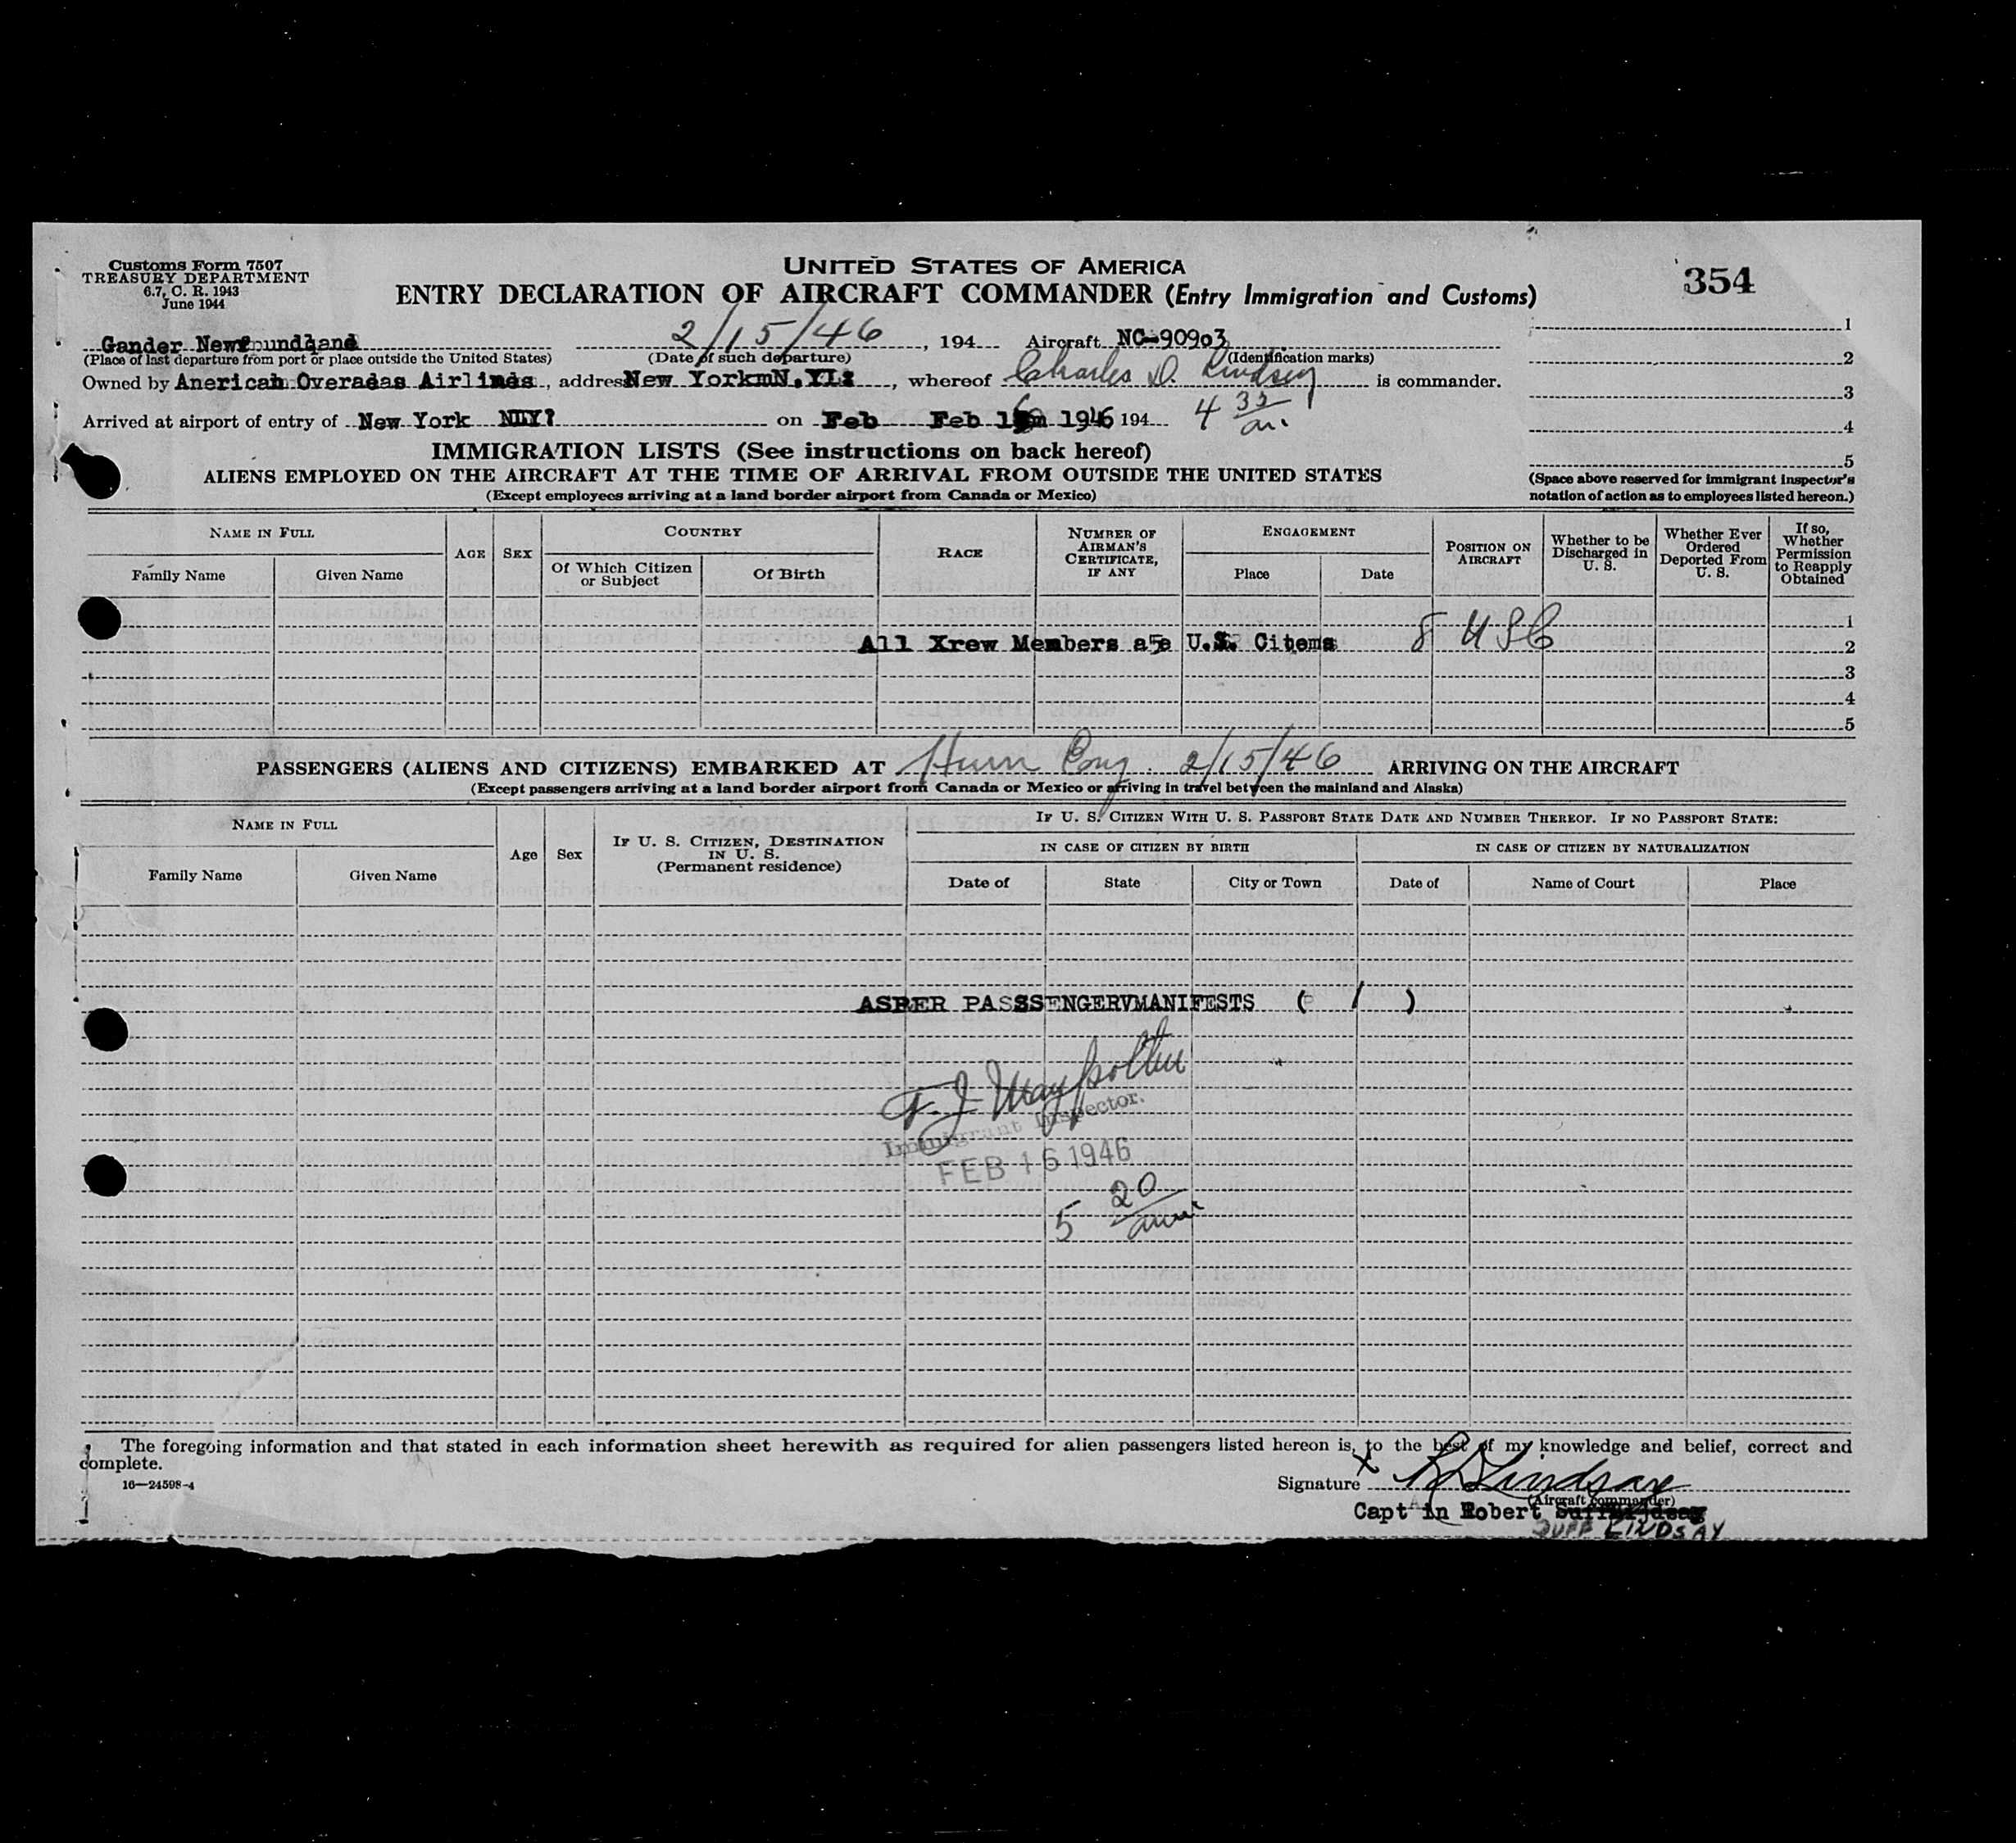 Customs Form 7507
TREASURY DEPARTMENT
6.7, C. R. 1943
June 1944
UNITED STATES OF AMERICA
ENTRY DECLARATION OF AIRCRAFT COMMANDER (Entry Immigration and Customs)
354
Gander Newfoundland 2/15/46, 194 Aircraft NC-90903
(Place of last departure from port or place outside the United States) (Date of such departure) (Identification marks)
Owned by American Overseas Airlines, address New York N.Y., whereof Charles D. Lindsey is commander.
Arrived at airport of entry of New York on Feb Feb 16 1946 194 4 35 am
IMMIGRATION LISTS (See instructions on back hereof)
ALIENS EMPLOYED ON THE AIRCRAFT AT THE TIME OF ARRIVAL FROM OUTSIDE THE UNITED STATES
(Except employees arriving at a land border airport from Canada or Mexico)
1
2
3
4
5
(Space above reserved for immigrant inspector's
notation of action as to employees listed hereon.)
NAME IN FULL
Family Name
Given Name
AGE
SEX
COUNTRY
Of Which Citizen
or Subject
Of Birth
RACE
NUMBER OF
AIRMAN'S
CERTIFICATE,
IF ANY
ENGAGEMENT
Place
Date
POSITION ON
AIRCRAFT
Whether to be
Discharged in
U. S.
Whether Ever
Ordered
Deported From
U. S.
If so,
Whether
Permission
to Reapply
Obtained
1
All Xrew Members a5e U.S. Citems 8 USC 2
3
4
5
PASSENGERS (ALIENS AND CITIZENS) EMBARKED AT Hurn Eng. 2/15/46 ARRIVING ON THE AIRCRAFT
(Except passengers arriving at a land border airport from Canada or Mexico or arriving in travel between the mainland and Alaska)
NAME IN FULL
Family Name
Given Name
Age
Sex
IF U. S. CITIZEN, DESTINATION
IN U. S.
(Permanent residence)
IF U. S. CITIZEN WITH U. S. PASSPORT STATE DATE AND NUMBER THEREOF. IF NO PASSPORT STATE:
IN CASE OF CITIZEN BY BIRTH
Date of
State
City or Town
IN CASE OF CITIZEN BY NATURALIZATION
Date of
Name of Court
Place
ASPER PASSSENGERVMANIFESTS ( / )
Immigrant Inspector.
FEB 16 1946
5 20 am
The foregoing information and that stated in each information sheet herewith as required for alien passengers listed hereon is, to the best of my knowledge and belief, correct and
complete.
16—24598-4
Signature X R D Lindsay
(Aircraft commander)
CaptAin Robert
DUFF LINDSAY